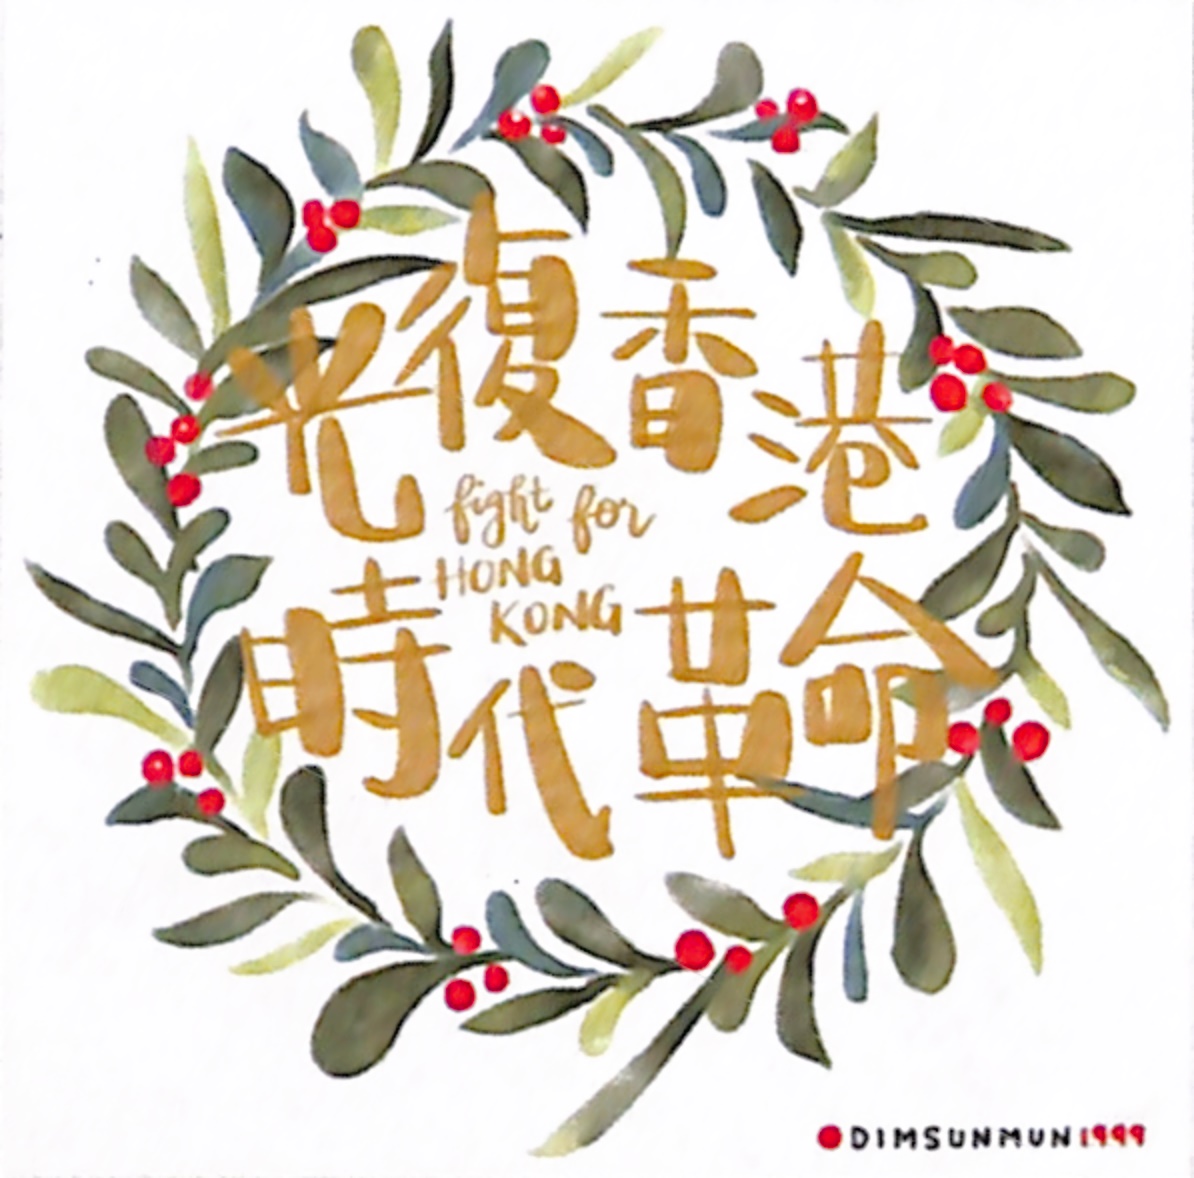 光復香港
fight for
HONG
KONG
時代革命
DIMSUNMUN1999